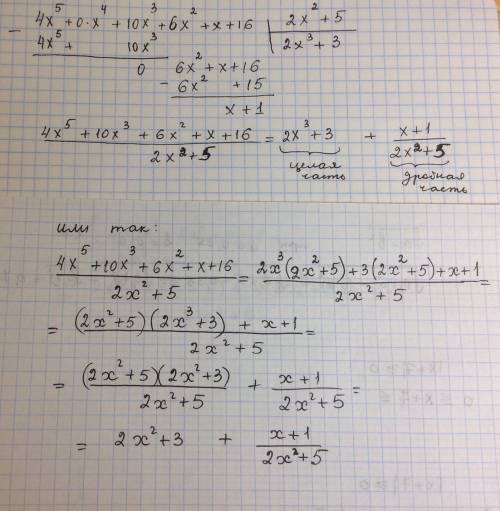 - 4x⁵ + 0·x⁴ + 10x³ + 6x² + x + 16 | 2x² + 5
4x⁵ + 10x³ | 2x³ + 3
0 6x² + x + 16
- 6x² + 15
x + 1
(4x⁵ + 10x³ + 6x² + x + 16)/(2x² + 5) = 2x³ + 3 + (x + 1)/(2x² + 5)
целая часть дробная часть
или так:
(4x⁵ + 10x³ + 6x² + x + 16)/(2x² + 5) = (2x³(2x² + 5) + 3(2x² + 5) + x + 1)/(2x² + 5) =
= ((2x² + 5)(2x³ + 3) + x + 1)/(2x² + 5) =
= ((2x² + 5)(2x² + 3))/(2x² + 5) + (x + 1)/(2x² + 5) =
= 2x² + 3 + (x + 1)/(2x² + 5)